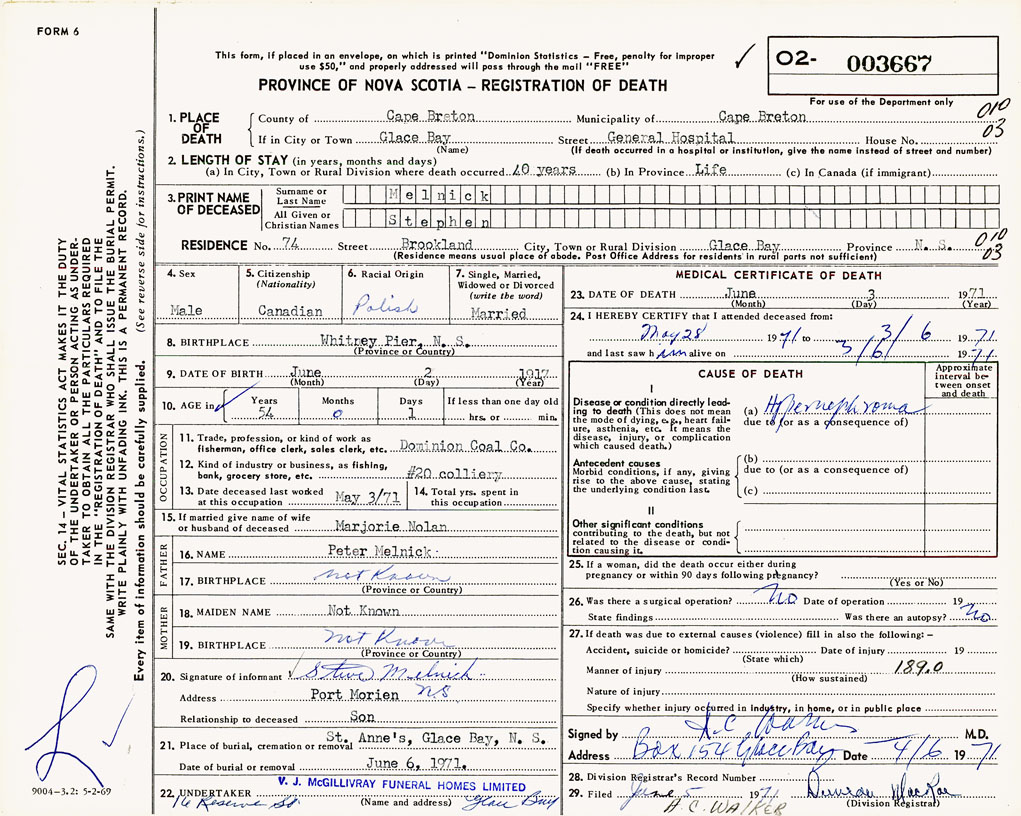 FORM 6
This form, if placed in an envelope, on which is printed "Dominion Statistics – Free, penalty for improper
use $50," and properly addressed will pass through the mail "FREE"
PROVINCE OF NOVA SCOTIA – REGISTRATION OF DEATH
02- 003667
For use of the Department only
010
03
1. PLACE OF DEATH
County of Cape Breton Municipality of Cape Breton
If in City or Town Glace Bay Street General Hospital House No.
(Name) (If death occurred in a hospital or institution, give the name instead of street and number)
2. LENGTH OF STAY (in years, months and days)
(a) In City, Town or Rural Division where death occurred 40 years (b) In Province Life (c) In Canada (if immigrant)
3. PRINT NAME OF DECEASED
Surname or Last Name Melnick
All Given or Christian Names Stephen
RESIDENCE No. 74 Street Brookland City, Town or Rural Division Glace Bay Province N. S.
010
03
(Residence means usual place of abode. Post Office Address for residents in rural parts not sufficient)
4. Sex
Male
5. Citizenship
(Nationality)
Canadian
6. Racial Origin
Polish
7. Single, Married,
Widowed or Divorced
(write the word)
Married
8. BIRTHPLACE Whitney Pier, N. S.
(Province or Country)
9. DATE OF BIRTH June 2 1917
(Month) (Day) (Year)
10. AGE in
Years Months Days If less than one day old
54 0 1 hrs. or min.
OCCUPATION
11. Trade, profession, or kind of work as
fisherman, office clerk, sales clerk, etc. Dominion Coal Co.
12. Kind of industry or business, as fishing,
bank, grocery store, etc. #20 colliery
13. Date deceased last worked
at this occupation May 3/71
14. Total yrs. spent in
this occupation
15. If married give name of wife
or husband of deceased Marjorie Nolan
FATHER
16. NAME Peter Melnick
17. BIRTHPLACE not Known
(Province or Country)
MOTHER
18. MAIDEN NAME Not Known
19. BIRTHPLACE not Known
(Province or Country)
20. Signature of informant Steve Melnick
Address Port Morien NS
Relationship to deceased Son
21. Place of burial, cremation or removal St. Anne's, Glace Bay, N. S.
Date of burial or removal June 6, 1971.
V. J. McGILLIVRAY FUNERAL HOMES LIMITED
22. UNDERTAKER (Name and address)
16 Reserve St Glace Bay
MEDICAL CERTIFICATE OF DEATH
23. DATE OF DEATH June 3 1971
(Month) (Day) (Year)
24. I HEREBY CERTIFY that I attended deceased from:
May 28 1971 to 3/6 1971
and last saw him alive on 3/6/ 1971
CAUSE OF DEATH
Approximate
interval be-
tween onset
and death
I
Disease or condition directly lead-
ing to death (This does not mean
the mode of dying, e.g., heart fail-
ure, asthenia, etc. It means the
disease, injury, or complication
which caused death.)
(a) Hypernephroma
due to (or as a consequence of)
Antecedent causes
Morbid conditions, if any, giving
rise to the above cause, stating
the underlying condition last.
(b)
due to (or as a consequence of)
(c)
II
Other significant conditions
contributing to the death, but not
related to the disease or condi-
tion causing it.
25. If a woman, did the death occur either during
pregnancy or within 90 days following pregnancy?
(Yes or No)
26. Was there a surgical operation? No Date of operation 19
State findings Was there an autopsy? No
27. If death was due to external causes (violence) fill in also the following: –
Accident, suicide or homicide? Date of injury 19
(State which)
Manner of injury 189.0
(How sustained)
Nature of injury
Specify whether injury occurred in industry, in home, or in public place
Signed by M.D.
Address Box 154 Glace Bay Date 4/6 1971
28. Division Registrar's Record Number
29. Filed June 5 1971 Duncan MacRae
(Division Registrar)
A.C. WALKER
SEC. 14 – VITAL STATISTICS ACT MAKES IT THE DUTY
OF THE UNDERTAKER OR PERSON ACTING AS UNDER-
TAKER TO OBTAIN ALL THE PARTICULARS REQUIRED
IN THE "REGISTRATION OF DEATH" AND TO FILE THE
SAME WITH THE DIVISION REGISTRAR WHO SHALL ISSUE THE BURIAL PERMIT.
WRITE PLAINLY WITH UNFADING INK. THIS IS A PERMANENT RECORD.
Every item of information should be carefully supplied. (See reverse side for instructions.)
9004-3.2: 5-2-69